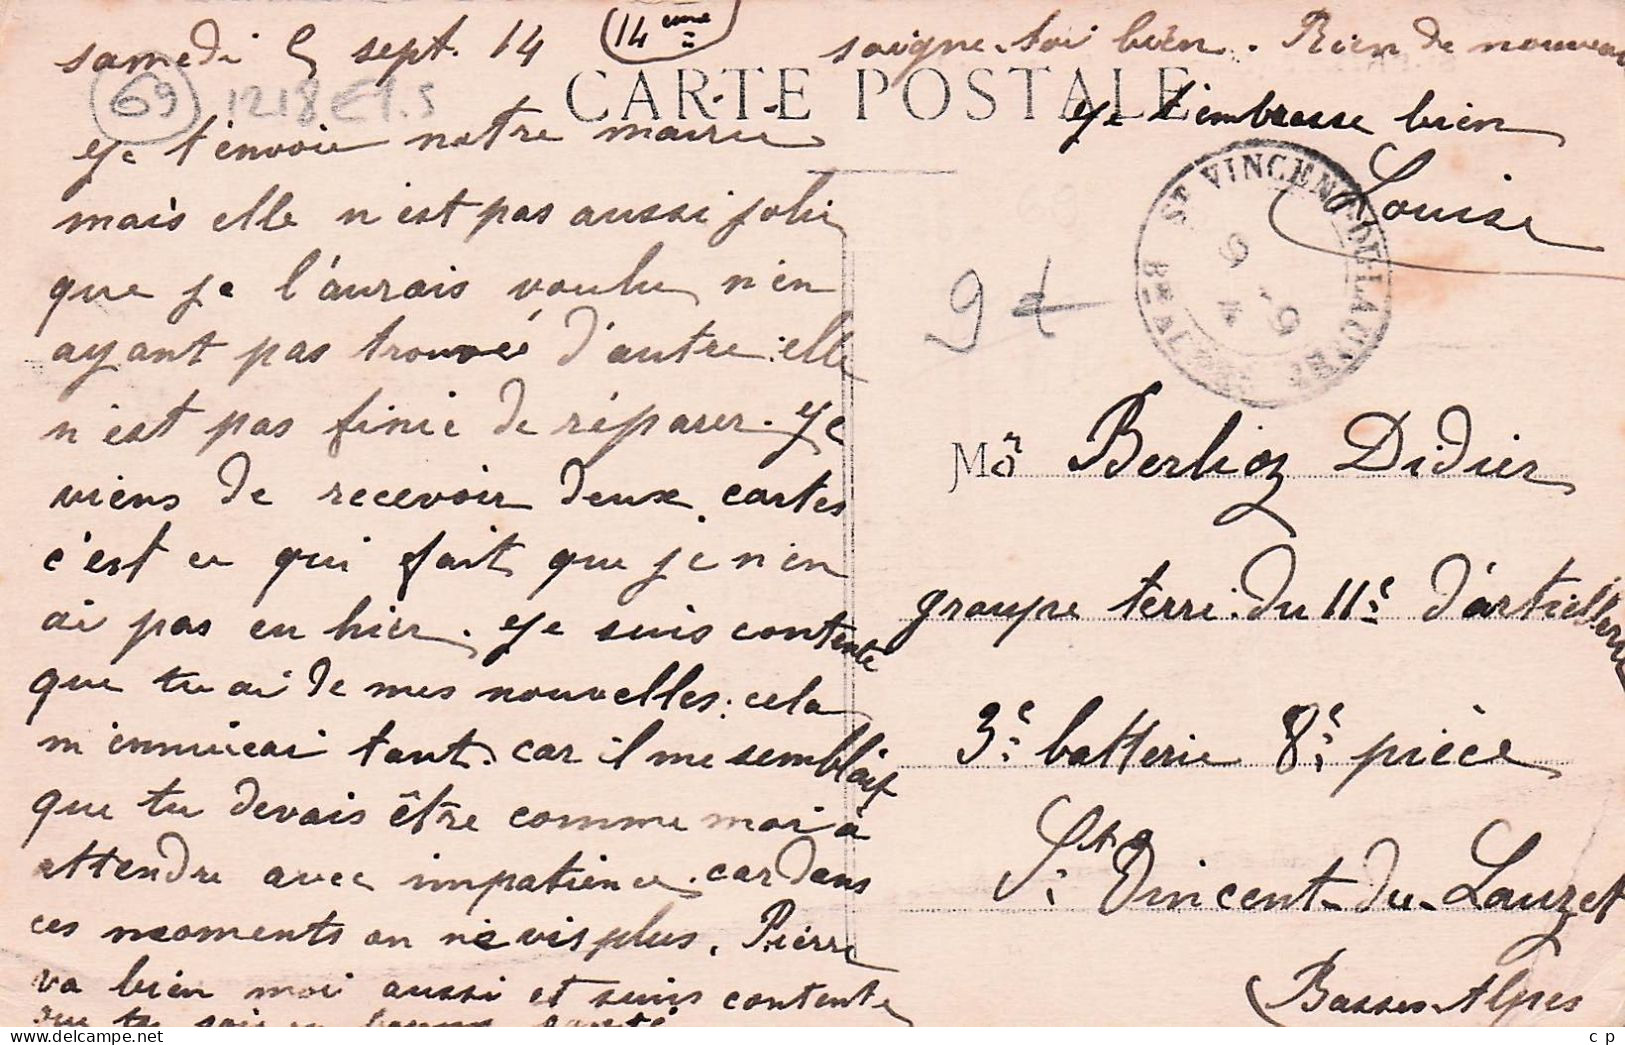 samedi 5 sept. 14 14eme
69 1218 E1.5
CARTE POSTALE
Je t'envoie notre mairie
mais elle n'est pas aussi jolie
que je l'aurais voulu, n'en
ayant pas trouvé d'autre : elle
n'est pas finie de réparer. Je
viens de recevoir deux cartes
c'est ce qui fait que je n'en
ai pas eu hier. Je suis contente
que tu ai de mes nouvelles : cela
m'ennuieai tant. car il me semblait
que tu devais être comme moi à
attendre avec impatience. car dans
ces moments on ne vis plus. Pierre
va bien moi aussi et suis contente
que tu sois en bonne santé
soigne-toi bien. Rien de nouveau
Je t'embrasse bien
Louise
ST VINCENT-DU-LAUZET
BSES ALPES
9 t
Mr Berlioz Didier
groupe terri. du 11e d'artiellerie
3e batterie 8e pièce
St Vincent-du-Lauzet
Basses-Alpes
c p